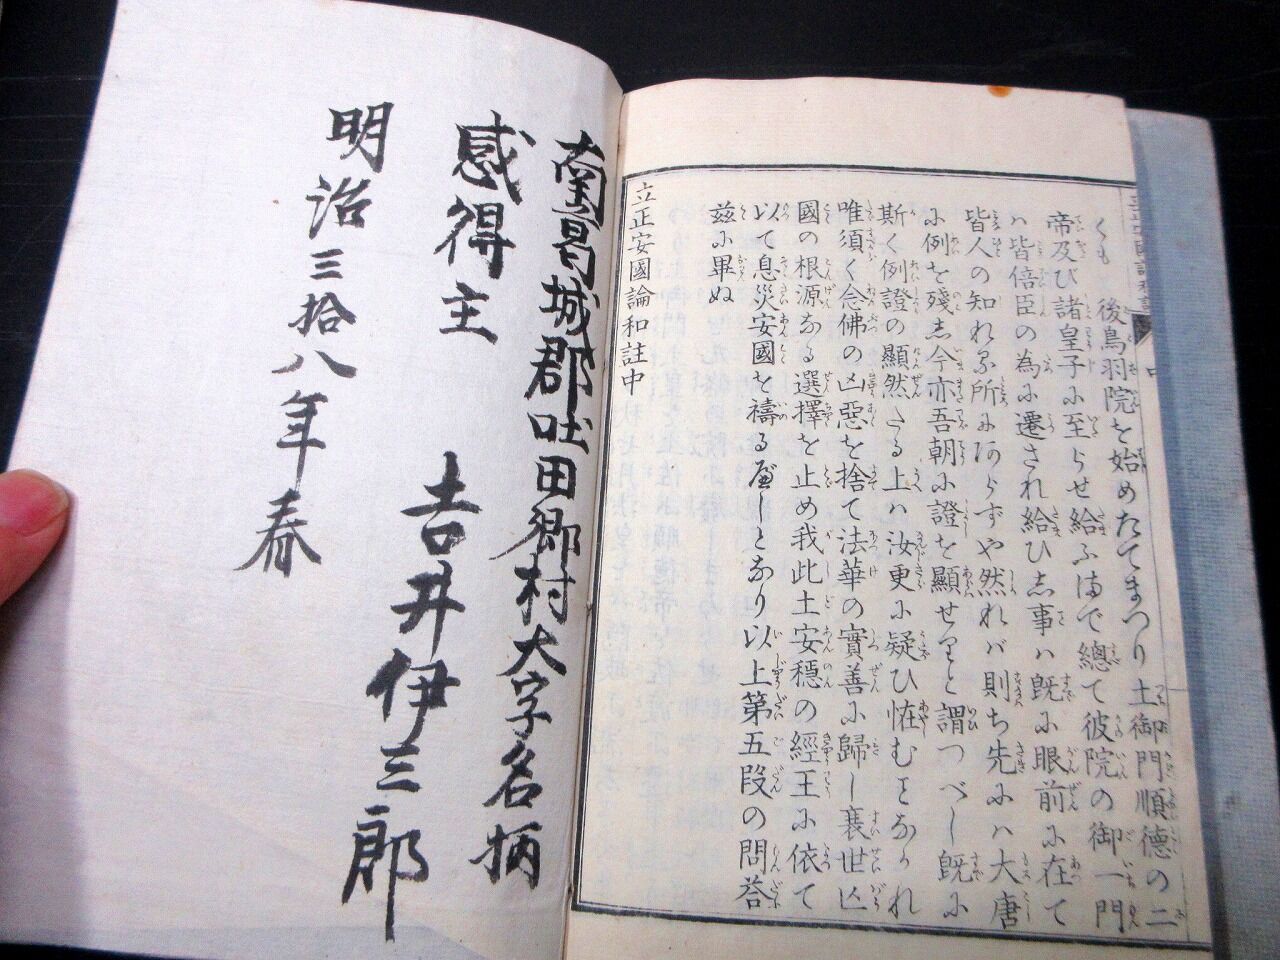 くも　後鳥羽院を始めたてまつり土御門順德の二
帝及び諸皇子に至らせ給ふまで總て彼院の御一門
ハ皆倍臣の為に遷され給ひし事ハ既に眼前に在て
皆人の知れる所にあらずや然れバ則ち先にハ大唐
に例を殘し今亦吾朝に證を顯せりと謂つべし既に
斯く例證の顯然たる上ハ汝更に疑ひ恠むことなかれ
唯須く念佛の凶惡を捨て法華の實善に歸し衰世亡
國の根源なる選擇を止め我此土安穩の經王に依て
以て息災安國を禱るべしとなり以上第五段の問答
茲に畢ぬ
立正安國論和註中
南葛城郡吐田郷村大字名柄
感得主　吉井伊三郎
明治三拾八年春